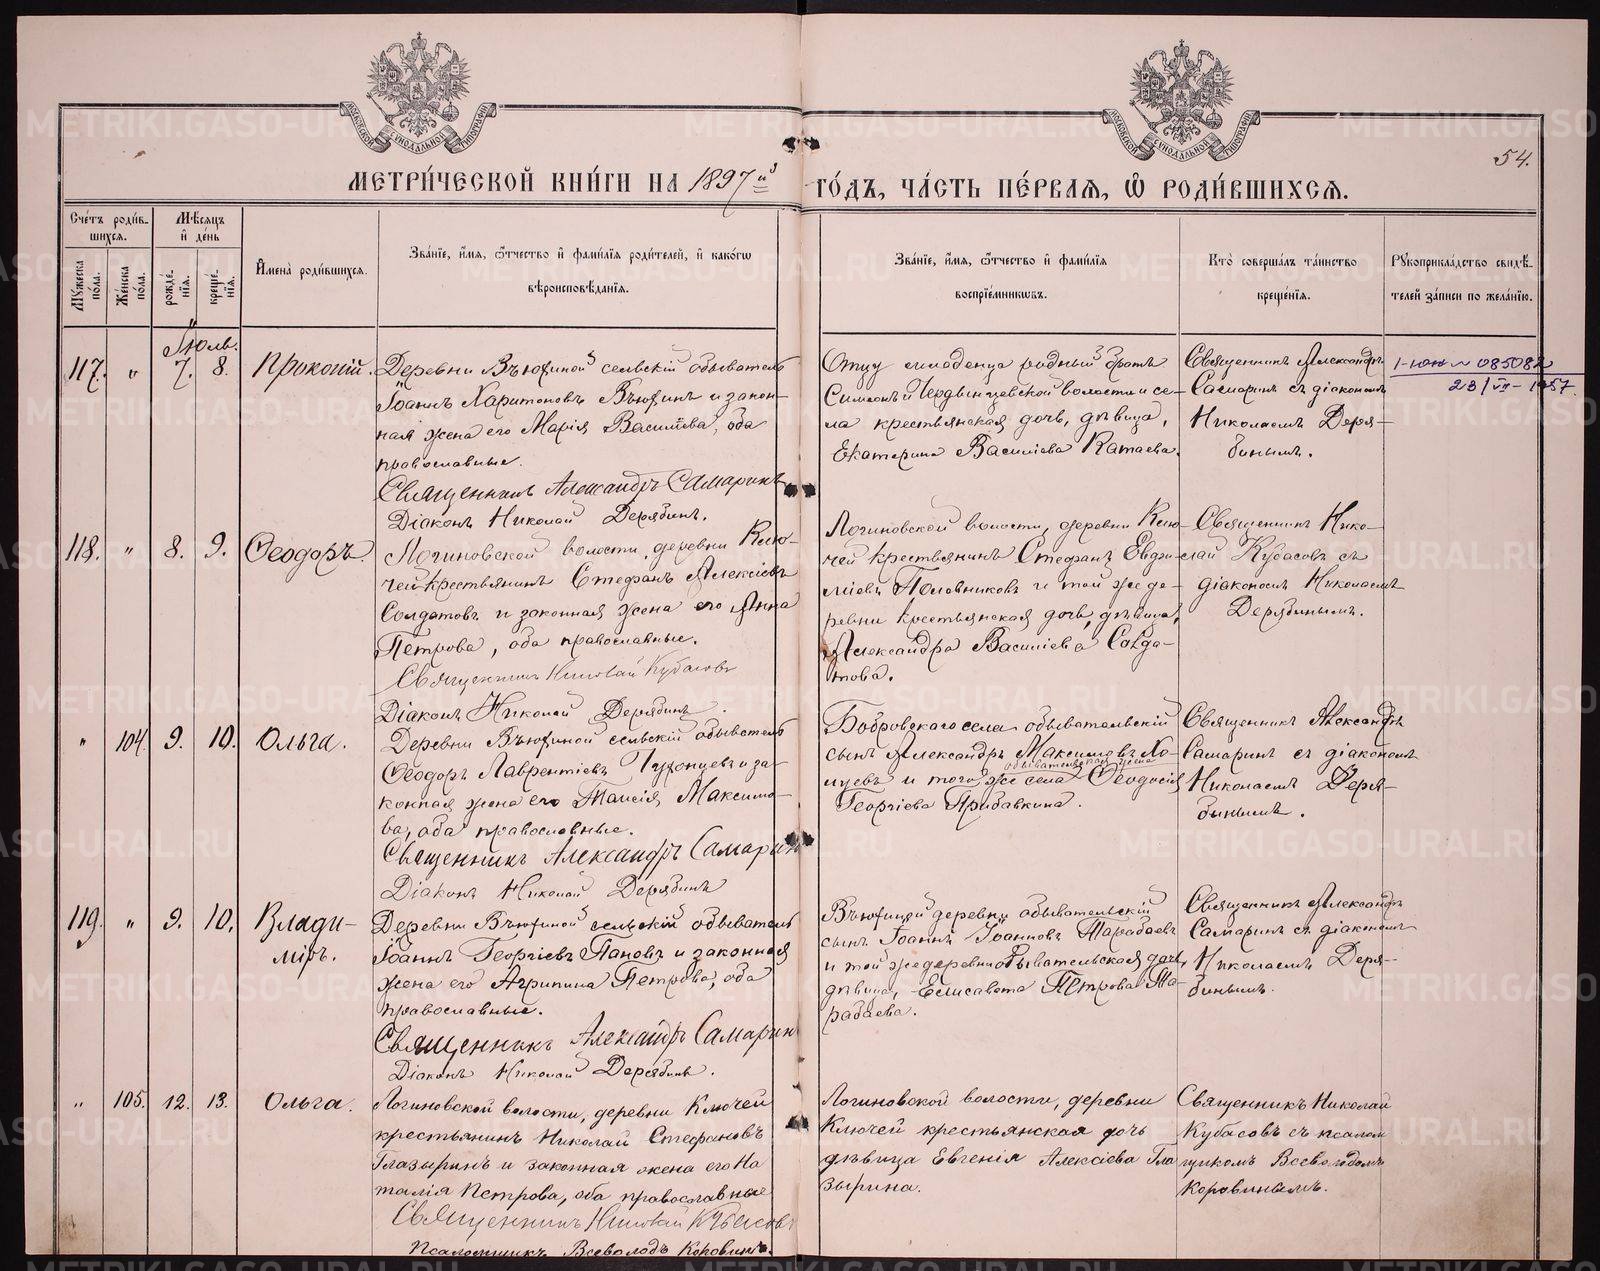 МОСКОВСКОЙ СѴНОДАЛЬНОЙ ТИПОГРАФІИ
МОСКОВСКОЙ СѴНОДАЛЬНОЙ ТИПОГРАФІИ
54.
МЕТРИ́ЧЕСКОЙ КНИ́ГИ НА 1897й
ГО́ДЪ, ЧА́СТЬ ПЕ́РВАЯ, Ѽ РОДИ́ВШИХСЯ.
Сче́тъ роди́в-
шихся.
Мꙋ́жеска по́ла.
Же́нска по́ла.
Мѣ́сяцъ
и҆ де́нь
рожде́-
нїя.
креще́-
нїя.
И҆мена̀ роди́вшихся.
Зва́нїе, и҆́мя, ѻ҆́тчество и҆ фами́лїя роди́телей, и҆ како́гѡ
вѣроисповѣ́данїя.
Зва́нїе, и҆́мя, ѻ҆́тчество и҆ фами́лїя
воспрїе́мниковъ.
Кто̀ соверша́лъ та́инство
креще́нїя.
Рꙋкоприкла́дство свидѣ́-
телей за́писи по жела́нїю.
Іюль.
117. " 7. 8. Прокопій.
Деревни Вьюхиной сельскій обыватель
Іоаннъ Харитоновъ Вьюхинъ и закон-
ная жена его Марія Васильева, оба
православные.
Священникъ Александръ Самаринъ
Діаконъ Николай Дерябинъ.
Отцу младенца родный братъ
Симеонъ и волости и се-
ла крестьянская дочь, дѣвица,
Екатерина Василіева Катаева.
Священникъ Александръ
Самаринъ съ діакономъ
Николаемъ Деря-
бинымъ.
1-юн № 085082
23/VII-1957.
118. " 8. 9. Ѳеодоръ.
Логиновской волости, деревни Клю-
чей крестьянинъ Стефанъ Алексіевъ
Солдатовъ и законная жена его Анна
Петрова, оба православные.
Священникъ Николай Кубасовъ
Діаконъ Николай Дерябинъ.
Логиновской волости, деревни Клю-
чей крестьянинъ Стефанъ Евфи-
міевъ Половниковъ и той же де-
ревни крестьянская дочь, дѣвица,
Александра Василіева Солда-
това.
Священникъ Нико-
лай Кубасовъ съ
діакономъ Николаемъ
Дерябинымъ.
" 104. 9. 10. Ольга.
Деревни Вьюхиной сельскій обыватель
Ѳеодоръ Лаврентіевъ и за-
конная жена его Таисія Максимо-
ва, оба православные.
Священникъ Александръ Самаринъ
Діаконъ Николай Дерябинъ
Бобровскаго села обывательскій
сынъ Александръ Максимовъ Ко-
и того же села обывательская жена Ѳеодосія
Георгіева Прибавкина.
Священникъ Александръ
Самаринъ съ діакономъ
Николаемъ Деря-
бинымъ.
119. " 9. 10. Влади-
міръ.
Деревни Вьюхиной сельскій обыватель
Іоаннъ Георгіевъ Пановъ и законная
жена его Агрипина Петрова, оба
православные.
Священникъ Александръ Самаринъ
Діаконъ Николай Дерябинъ.
Вьюхиной деревни обывательскій
сынъ Іоаннъ Іоанновъ Тарабаевъ
и той же деревни обывательская дочь,
дѣвица, Елисавета Петрова Та-
рабаева.
Священникъ Александръ
Самаринъ съ діакономъ
Николаемъ Деря-
бинымъ.
" 105. 12. 13. Ольга.
Логиновской волости, деревни Ключей
крестьянинъ Николай Стефановъ
Глазыринъ и законная жена его На
талія Петрова, оба православные
Священникъ Николай Кубасовъ
Псаломщикъ Всеволодъ Коровинъ.
Логиновской волости, деревни
Ключей крестьянская дочь
дѣвица Евгенія Алексіева Гла
зырина.
Священникъ Николай
Кубасовъ съ псалом
щикомъ Всеволодомъ
Коровинымъ.
METRIKI.GASO-URAL.RU